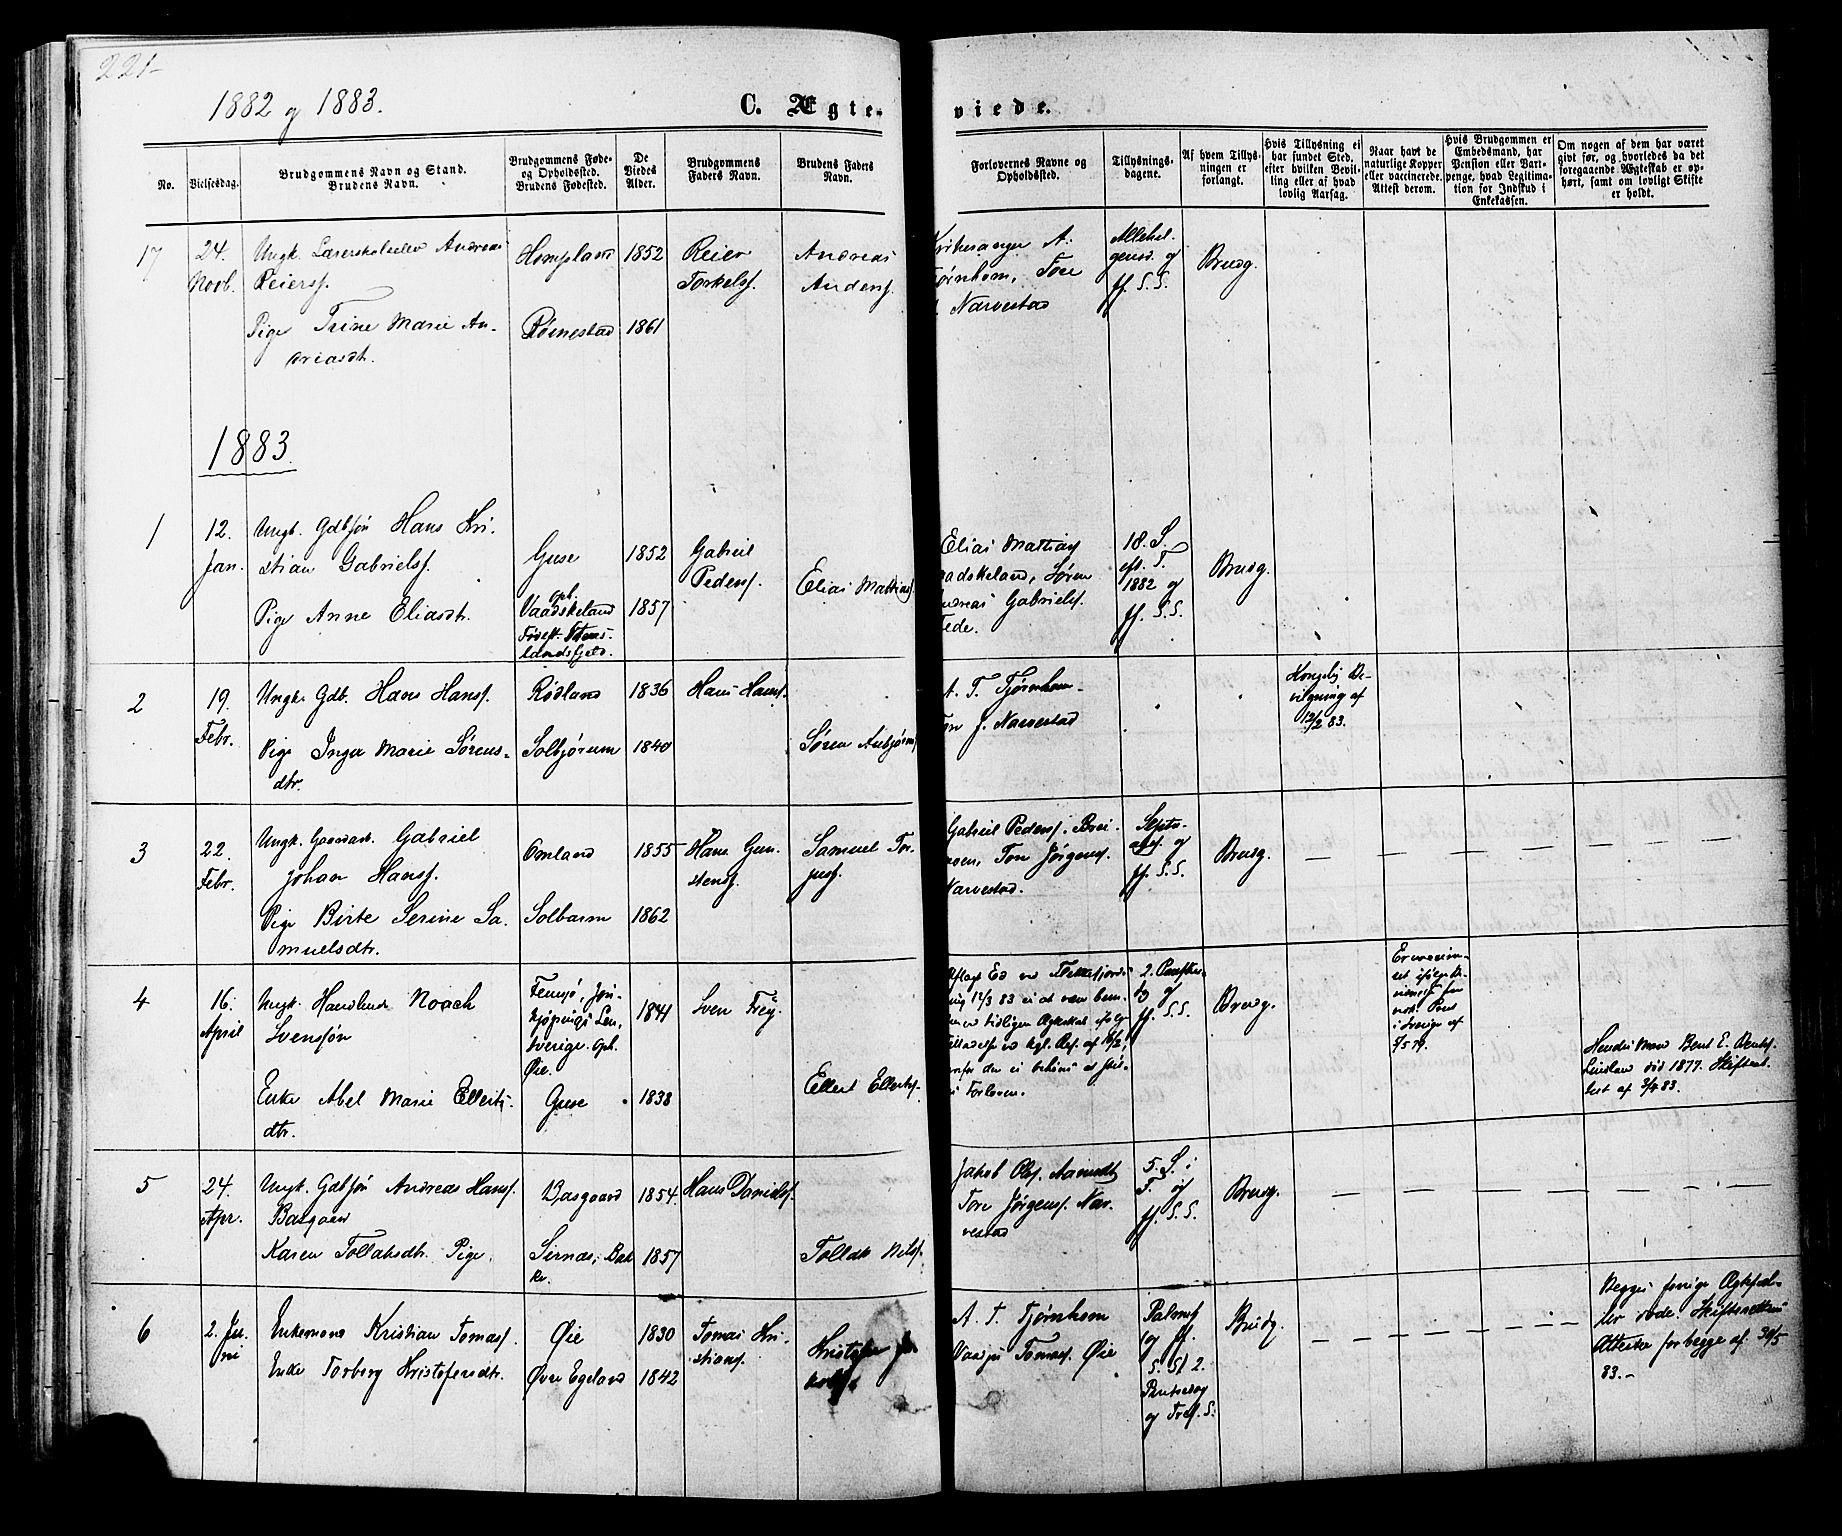 221
1882 og 1883.
C. Ægte-
viede.
No.
Vielsesdag.
Brudgommens Navn og Stand.
Brudens Navn.
Brudgommens Føde-
og Opholdssted.
Brudens Fødested.
De
Viedes
Alder.
Brudgommens
Faders Navn.
Brudens Faders
Navn.
Forlovernes Navne og
Opholdssted.
Tillysnings-
dagene.
Af hvem Tillys-
ningen er
forlangt.
Hvis Tillysning ei
har fundet Sted,
efter hvilken Bevil-
ling eller af hvad
lovlig Aarsag.
Naar havt de
naturlige Kopper
eller vaccinerede.
Attest derom.
Hvis Brudgommen er
Embedsmand, har
Pension eller Vart-
penge, hvad Legitima-
tion for Indskud i
Enkekassen.
Om nogen af dem har været
givt før, og hvorledes da det
foregaaende Ægteskab er op-
hørt, samt om lovligt Skifte
er holdt.
17
24.
Novb.
Ungk. Lærerskoleelev Andreas
Reiersf.
Pige Trine Marie An-
dreasdt.
Hompland
Rørnestad
1852
1861
Reier
Torkelsf.
Andreas
Andersf.
Kirkesanger A.
Tjørnhom, Tore
Narvestad
Allehel-
gensd. og
ff. S. S.
Brudg.
1883.
1
12.
Jan.
Ungk. Gdbsøn Hans Kri-
stian Gabrielsf.
Pige Anne Eliasdt.
Guse
oph.
Vaadskeland
Fødest.
landsfjeld.
1852
1857
Gabriel
Pedersf.
Elias Mattiasf.
Elias Mattiasf.
aadskeland, Søren
Andreas Gabrielsf.
Fede.
18. S.
eft. T.
1882 og
ff. S. S.
Brudg.
2
19.
Febr.
Ungk. Gdb. Hans Hansf.
Pige Inger Marie Sørens-
dtr.
Rødland
Solbjørum
1836
1840
Hans Hansf.
Søren Asbjørnsf.
A. T. Tjørnhom
Tore J. Narvestad
Kongelig Be-
vilgning af
12/2 83.
3
22.
Febr.
Ungk. Gaardst. Gabriel
Johan Hansf.
Pige Birte Serine Sa-
muelsdtr.
Omland
Solbarm
1855
1862
Hans Gun-
stensf.
Samuel Tor-
jusf.
Gabriel Pedersf. Brei-
Tore Jørgensf.
Narvestad.
Septu-
ages. og
ff. S. S.
Brudg.
4
16.
April
Ungk. Handlende Noach
Svensson
Enke Abel Marie Ellerts-
dtr.
Femsjø, Jøn-
kjøpings Len,
Sverige. Oph.
Øie.
Guse
1841
1838
Sven Frey
Ellert Ellertsf.
Aflagt Ed ved Flekkefjords
ing 12/3 83 ei at være bun-
den ved tidligere Ægteskab
ved kgl. Res. af
for den ei behøves at stil-
Forlovere.
2. Paaske-
dg og
ff. S. S.
Brudg.
Er vaccine-
ret ifølge
i Sverige af
5/5 79.
Hendes Mand Bent E. Bentsf.
Linsland død 1877. Skifteat-
test af 3/4 83.
5
24.
Apr.
Ungk. Gdbsøn Andreas Hansf.
Basgaard
Karen Tollaksdtr. Pige.
Basgaard
Sirnes, Bak-
ke.
1854
1857
Hans Danielsf.
Tollak Nilsf.
Jakob Olsf. Aamodt
Tore Jørgensf. Nar-
vestad
5. S. i
F. og
ff. S. S.
Brudg.
6
2. Ju-
ni
Enkemand Kristian Tomasf.
Enke Torborg Kristofersdtr.
Øie
Øvre Egeland
1830
1842
Tomas Kri-
stiansf.
Kristofer
A. T. Tjørnhom
Tomasf. Øie
Palmes.
og ff.
S. St 2.
Pintsedag
og Tref. S.
Brudg.
Begges forrige Ægtefæl-
ler døde. Skifterettens
Attester for begge af 30/5
83.